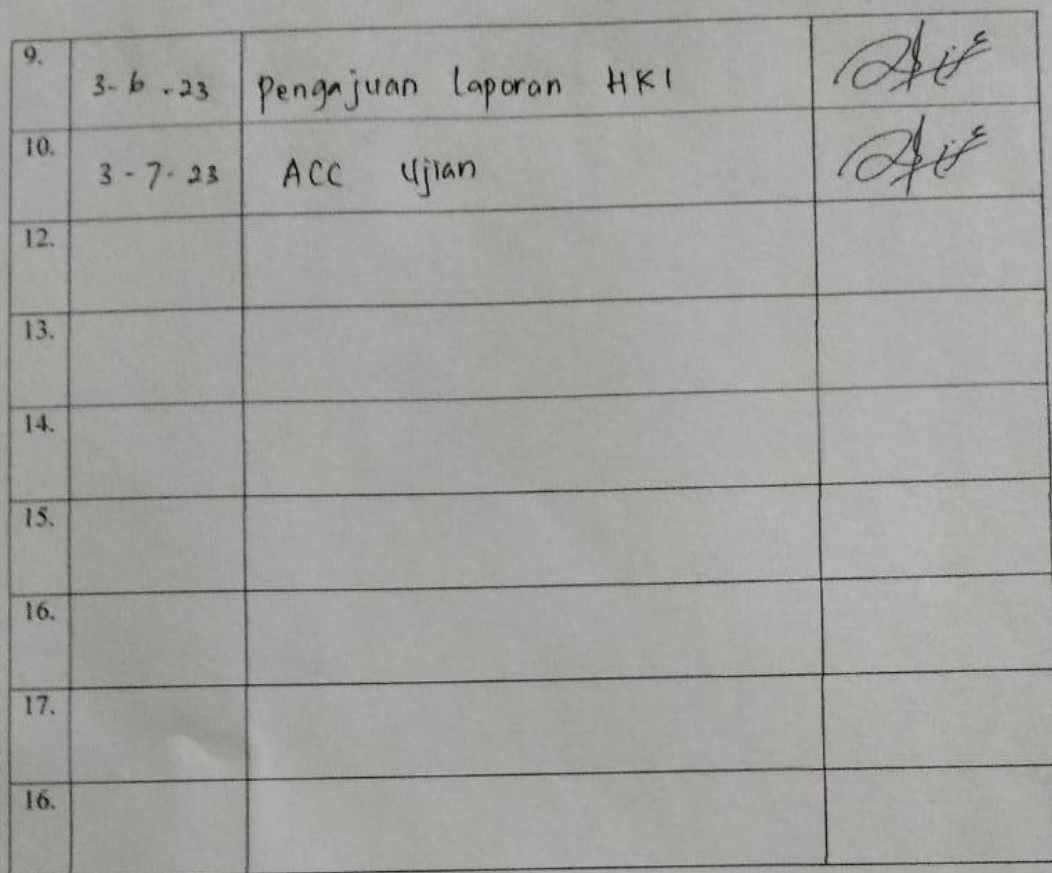 9. 3-6-23 Pengajuan Laporan HKI
10. 3-7-23 ACC Ujian
12.
13.
14.
15.
16.
17.
16.